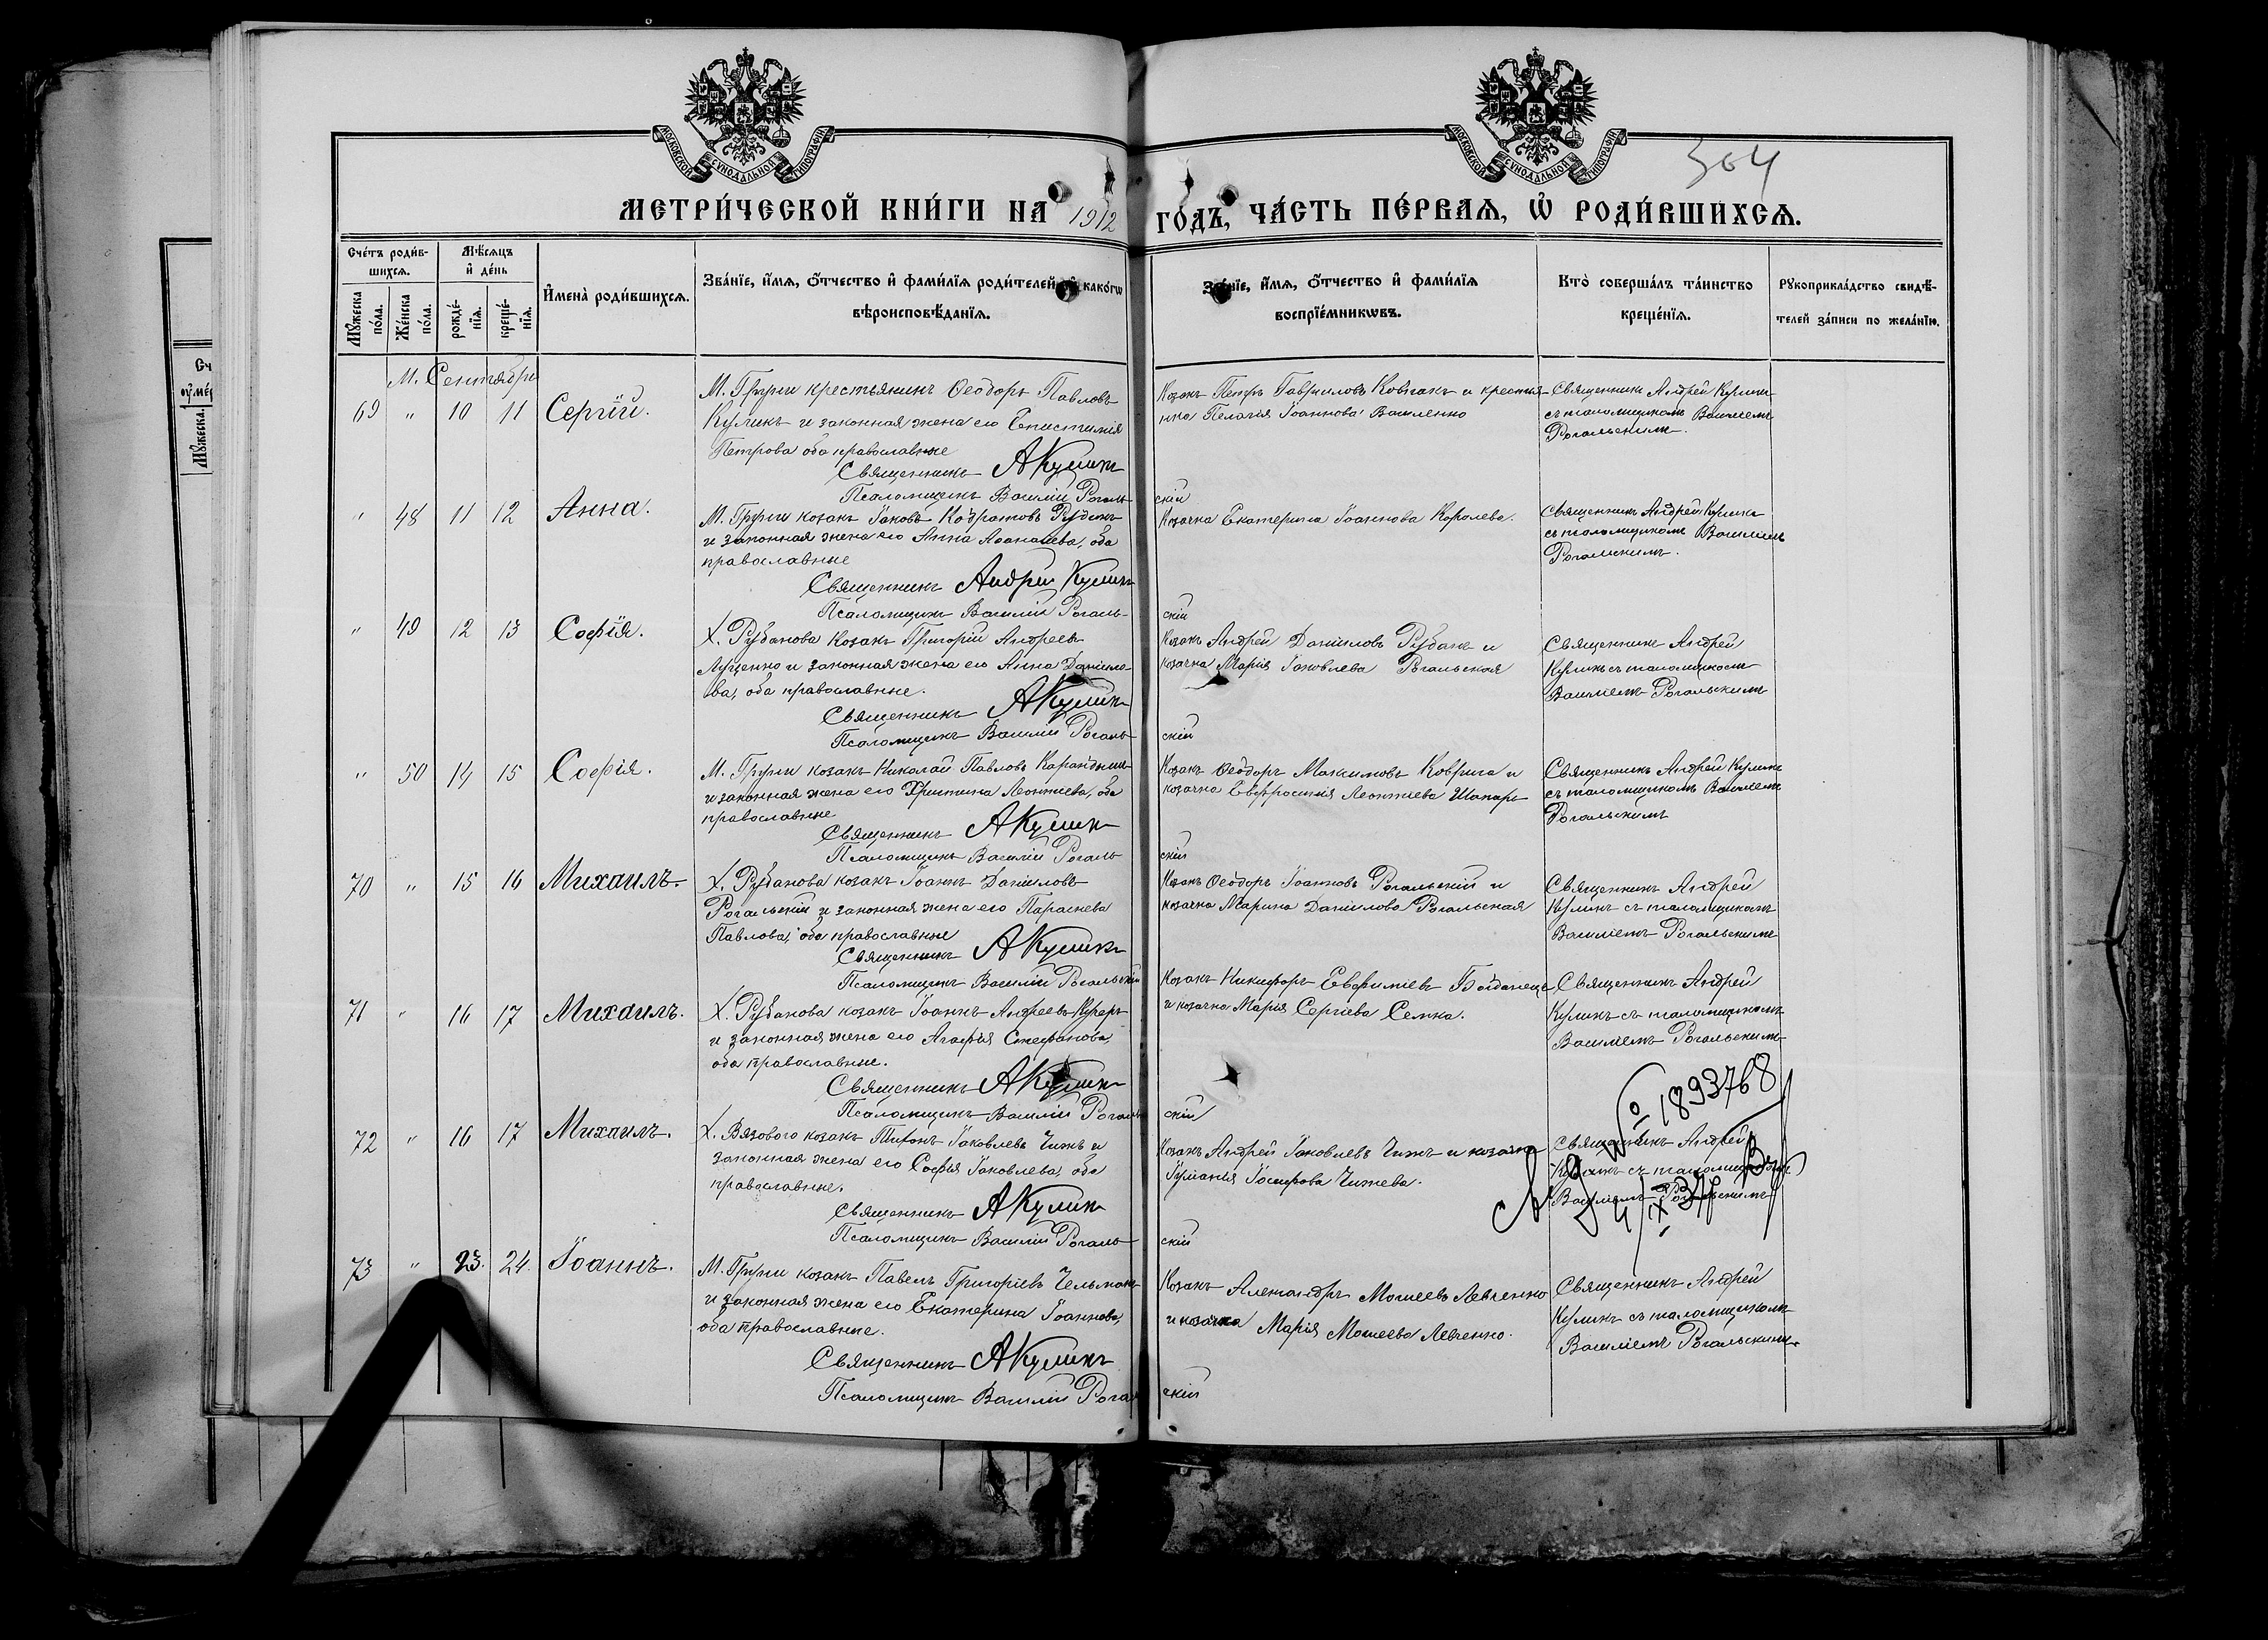 МОСКОВСКОЙ СѴНОДАЛЬНОЙ ТИПОГРАФІИ
МОСКОВСКОЙ СѴНОДАЛЬНОЙ ТИПОГРАФІИ
304
МЕТРИ́ЧЕСКОЙ КНИ́ГИ НА 1912 ГО́ДЪ, ЧА́СТЬ ПЕ́РВАѦ, Ѡ҆ РОДИ́ВШИХСѦ.
Счéтъ роди́в-
шихсѧ.
Мѣ́сѧцъ
и҆ дéнь
Мꙋ́жеска пóла.
Жéнска пóла.
рождé-нїѧ.
крещé-нїѧ.
И҆менà роди́вшихсѧ.
Звáнїе, и҆́мѧ, ѻ҆́тчество и҆ фами́лїѧ роди́телей и҆ какóгѡ
вѣроисповѣ́данїѧ.
Звáнїе, и҆́мѧ, ѻ҆́тчество и҆ фами́лїѧ
воспрїéмникѡвъ.
Ктò соверша́лъ та́инство
крещéнїѧ.
Рꙋкоприкла́дство свидѣ́-
телей за́писи по жела́нїю.
М. Сентябрь
69 " 10 11 Сергій.
М. Груни крестьянинъ Ѳеодоръ Павловъ
Куликъ и законная жена его Епистимія
Петрова оба православные
Священникъ АКуликъ
Псаломщикъ Василій Рогаль-
скій
Козакъ Петръ Гавриловъ Ковпакъ и крестья-
нка Пелагія Іоаннова Василенко
Священникъ Андрей Куликъ
съ псаломщикомъ Василіемъ
Рогальскимъ.
" 48 11 12 Анна.
М. Груни козакъ Іаковъ Кодратовъ Рудикъ
и законная жена его Анна Аѳанасіева, оба
православные
Священникъ Андрей Куликъ
Псаломщикъ Василій Рогаль-
скій
Козачка Екатерина Іоаннова Королева.
Священникъ Андрей Куликъ
съ псаломщикомъ Василіемъ
Рогальскимъ.
" 49 12 13 Софія.
Х. Рубанова козакъ Григорій Андреевъ
Луценко и законная жена его Анна Данiило-
ва, оба православные.
Священникъ АКуликъ
Псаломщикъ Василій Рогаль-
скій
Козакъ Андрей Даніиловъ Рубанъ и
козачка Марія Іаковлева Рогальская
Священникъ Андрей
Куликъ съ псаломщикомъ
Василіемъ Рогальскимъ
" 50 14 15 Софія.
М. Груни козакъ Николай Павловъ
и законная жена его Христина Леонтіева, оба
православные
Священникъ АКуликъ
Псаломщикъ Василій Рогаль-
скій
Козакъ Ѳеодоръ Максимовъ Коврига и
козачка Евфросинія Леонтіева Шапарь
Священникъ Андрей Куликъ
съ псаломщикомъ Василіемъ
Рогальскимъ
70 " 15 16 Михаилъ.
Х. Рубанова козакъ Іоаннъ Даніиловъ
Рогальскій и законная жена его Параскева
Павлова, оба православные
Священникъ АКуликъ
Псаломщикъ Василій Рогальскій
Козакъ Ѳеодоръ Іоанновъ Рогальскій и
козачка Марина Даніилова Рогальская
Священникъ Андрей
Куликъ съ псаломщикомъ
Василіемъ Рогальскимъ
71 " 16 17 Михаилъ.
Х. Рубанова козакъ Іоаннъ Андреевъ
и законная жена его Агафія Стефанова,
оба православные.
Священникъ АКуликъ
Псаломщикъ Василій Рогаль-
скій
Козакъ Никифоръ Евфиміевъ Богданецъ
и козачка Марія Сергіева Семка.
Священникъ Андрей
Куликъ съ псаломщикомъ
Василіемъ Рогальскимъ
№ 1893768
4/IX 37
72 " 16 17 Михаилъ.
Х. Вязового козакъ Тихонъ Іаковлевъ Чижъ и
законная жена его Софья Іаковлева, оба
православные.
Священникъ АКуликъ
Псаломщикъ Василій Рогаль-
скій
Козакъ Андрей Іаковлевъ Чижъ и козачка
Іосифова Чижева.
Священникъ Андрей
Куликъ съ псаломщикомъ
Василіемъ Рогальскимъ
73 " 23. 24. Іоаннъ.
М. Груни козакъ Павелъ Григоріевъ
и законная жена его Екатерина Іоаннова,
оба православные.
Священникъ АКуликъ
Псаломщикъ Василій Рогаль-
скій
Козакъ Александръ Моисеевъ Левченко
и козачка Марія Моисеева Левченко.
Священникъ Андрей
Куликъ съ псаломщикомъ
Василіемъ Рогальскимъ